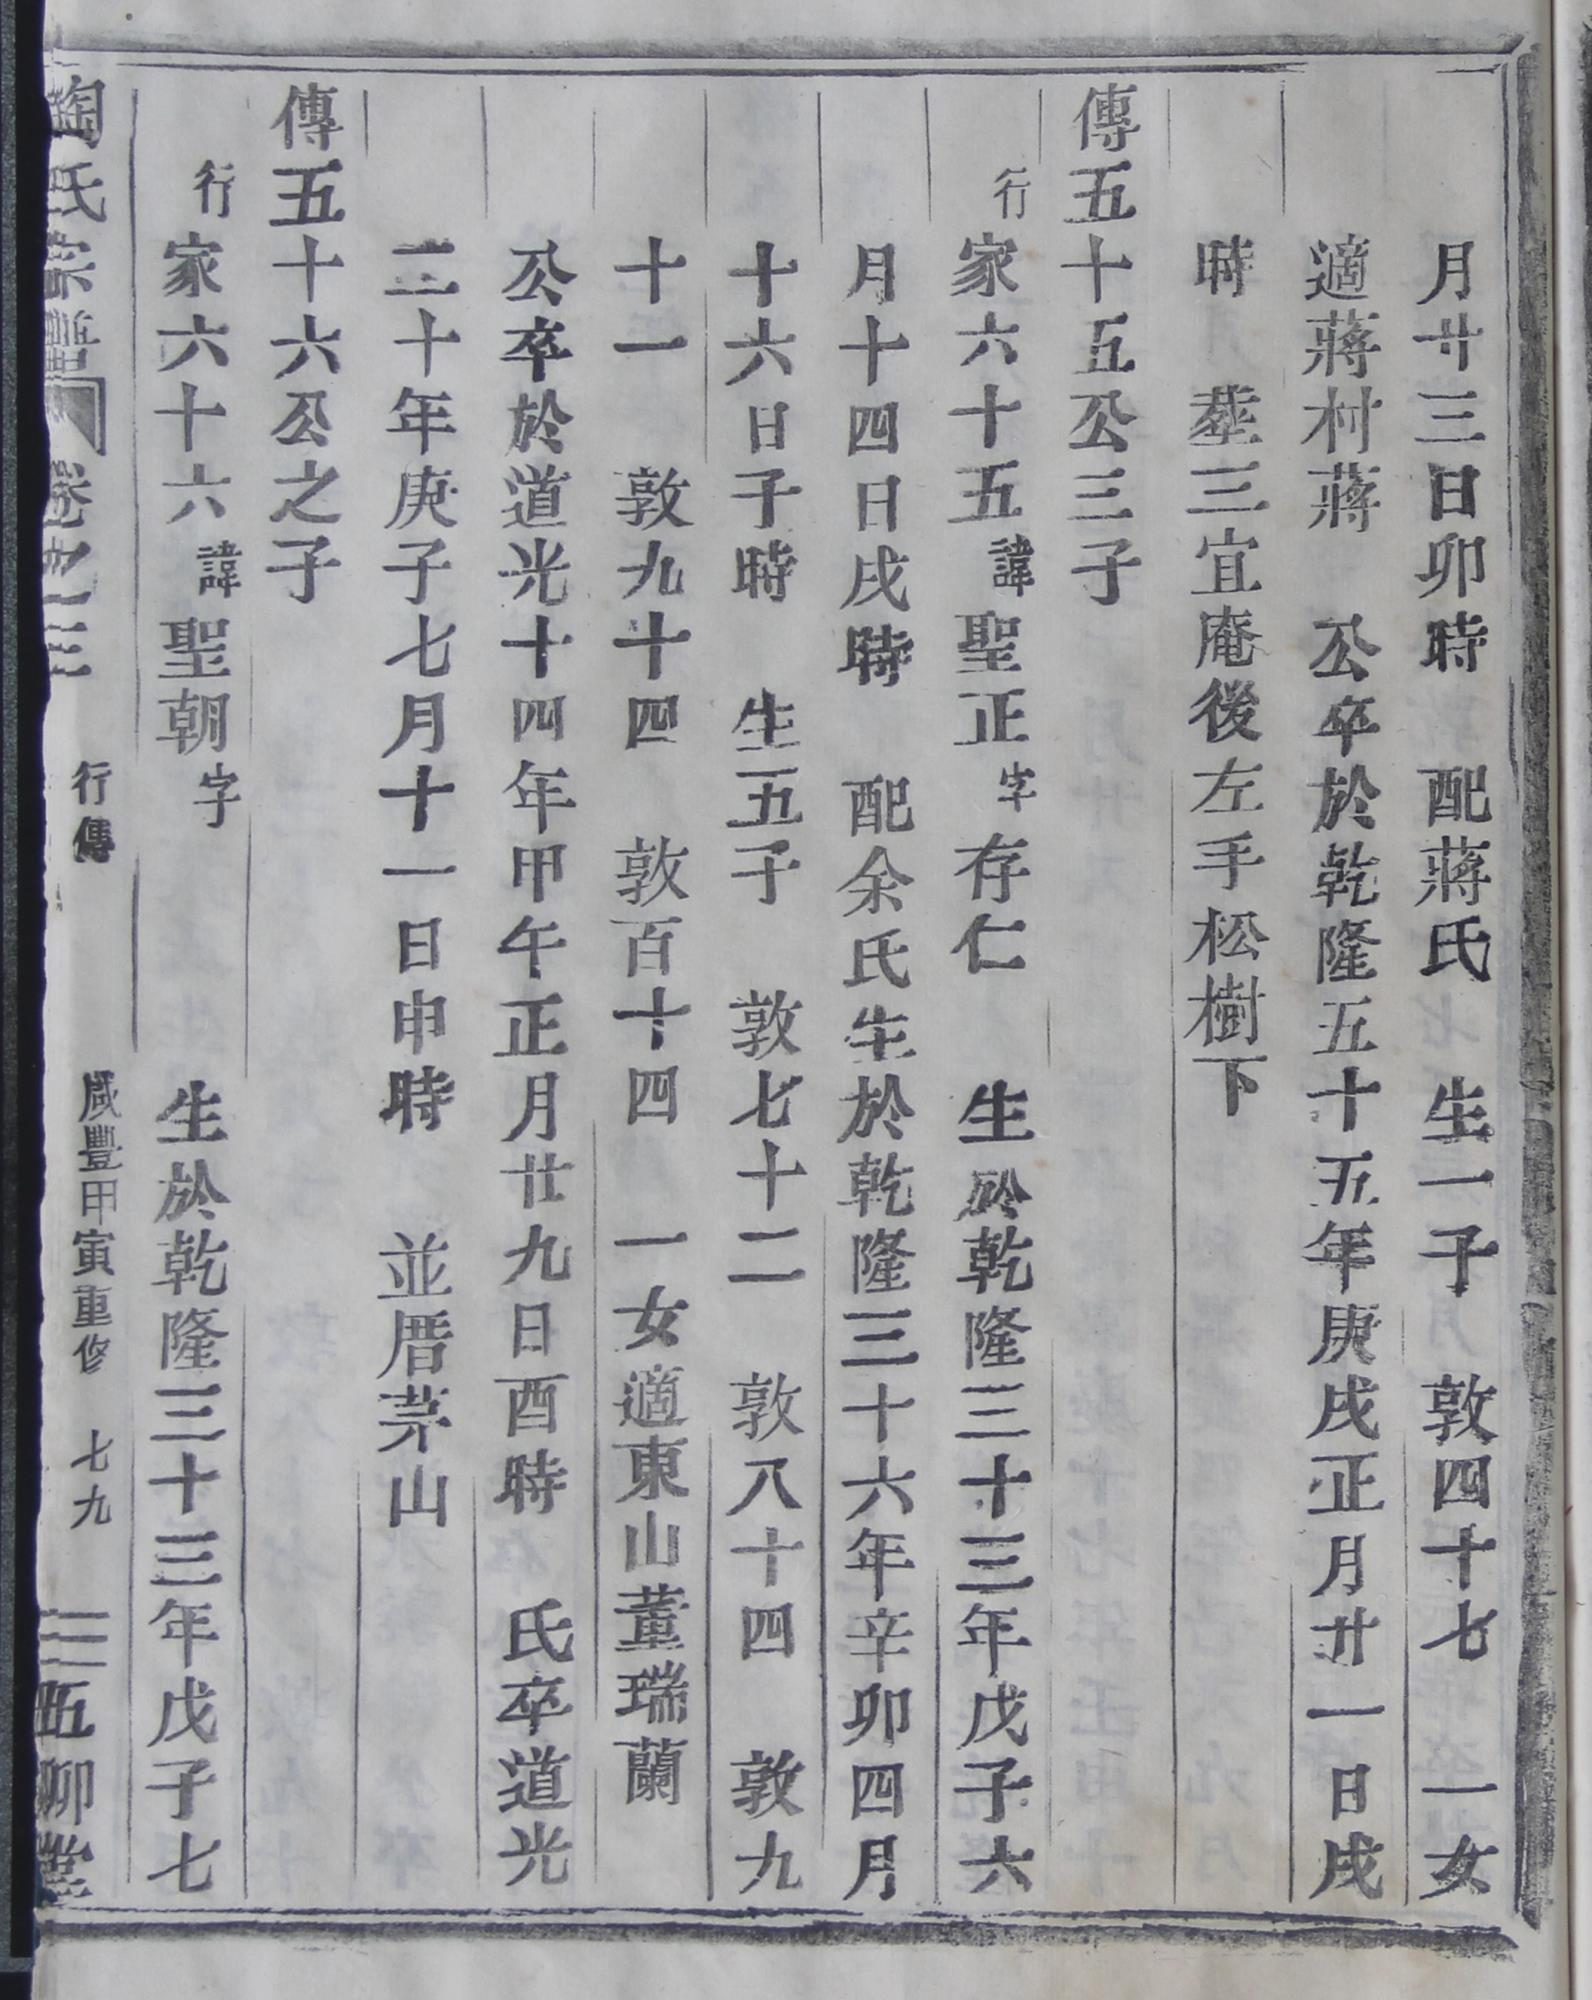 月廿三日卯時　配蔣氏　生一子　敦四十七　一女
適蔣村蔣　公卒於乾隆五十五年庚戌正月廿一日戌
時　塟三宜庵後左手松樹下
傳五十五公三子
行家六十五諱聖正字存仁　生於乾隆三十三年戊子六
月十四日戌時　配余氏生於乾隆三十六年辛卯四月
十六日子時　生五子　敦七十二　敦八十四　敦九
十一　敦九十四　敦百十四　一女適東山董瑞蘭
公卒於道光十四年甲午正月廿九日酉時　氏卒道光
二十年庚子七月十一日申時　並厝茅山
傳五十六公之子
行家六十六諱聖朝字　生於乾隆三十三年戊子七
陶氏宗譜　卷之三　行傳　咸豐甲寅重修　七九　五柳堂